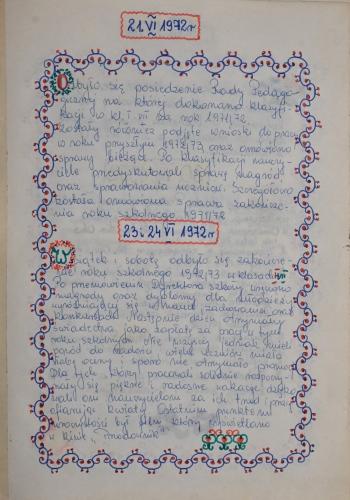 21 VI 1972 r
Odbyło się posiedzenie Rady Pedago-
gicznej na której dokonano klasyfi-
kacji w kl. I-VII za rok 1971/72.
Zostały również podjęte wnioski do pracy
w roku przyszłym 1972/73 oraz omówiono
sprawy bieżące. Po klasyfikacji nauczy-
ciele przedyskutowali sprawy nagród
oraz sprawowania uczniów. Szczegółowo
została omówiona sprawa zakończe-
nia roku szkolnego 1971/72
23 i 24 VI 1972 r
W piątek i sobotę odbyło się zakończe-
nie roku szkolnego 1972/73 w klasach
Po przemówieniu Dyrektora szkoły wręczono
nagrody oraz dyplomy dla młodzieży
wyróżniającej się w nauce zachowaniu oraz
konkursach. Następnie dzieci otrzymały
świadectwa jako zapłatę za pracę w tym
roku szkolnym. Nie
powód do radości wielu uczniów miało
oceny i sporo nie otrzymało promocji
Dla tych, którzy pracowali solidnie rozpoczy-
nają się piękne i radosne wakacje
oni nauczycielom za ich trud i pracę
ofiarując kwiaty. Ostatnim punktem
uroczystości był film który wyświetlano
w kinie